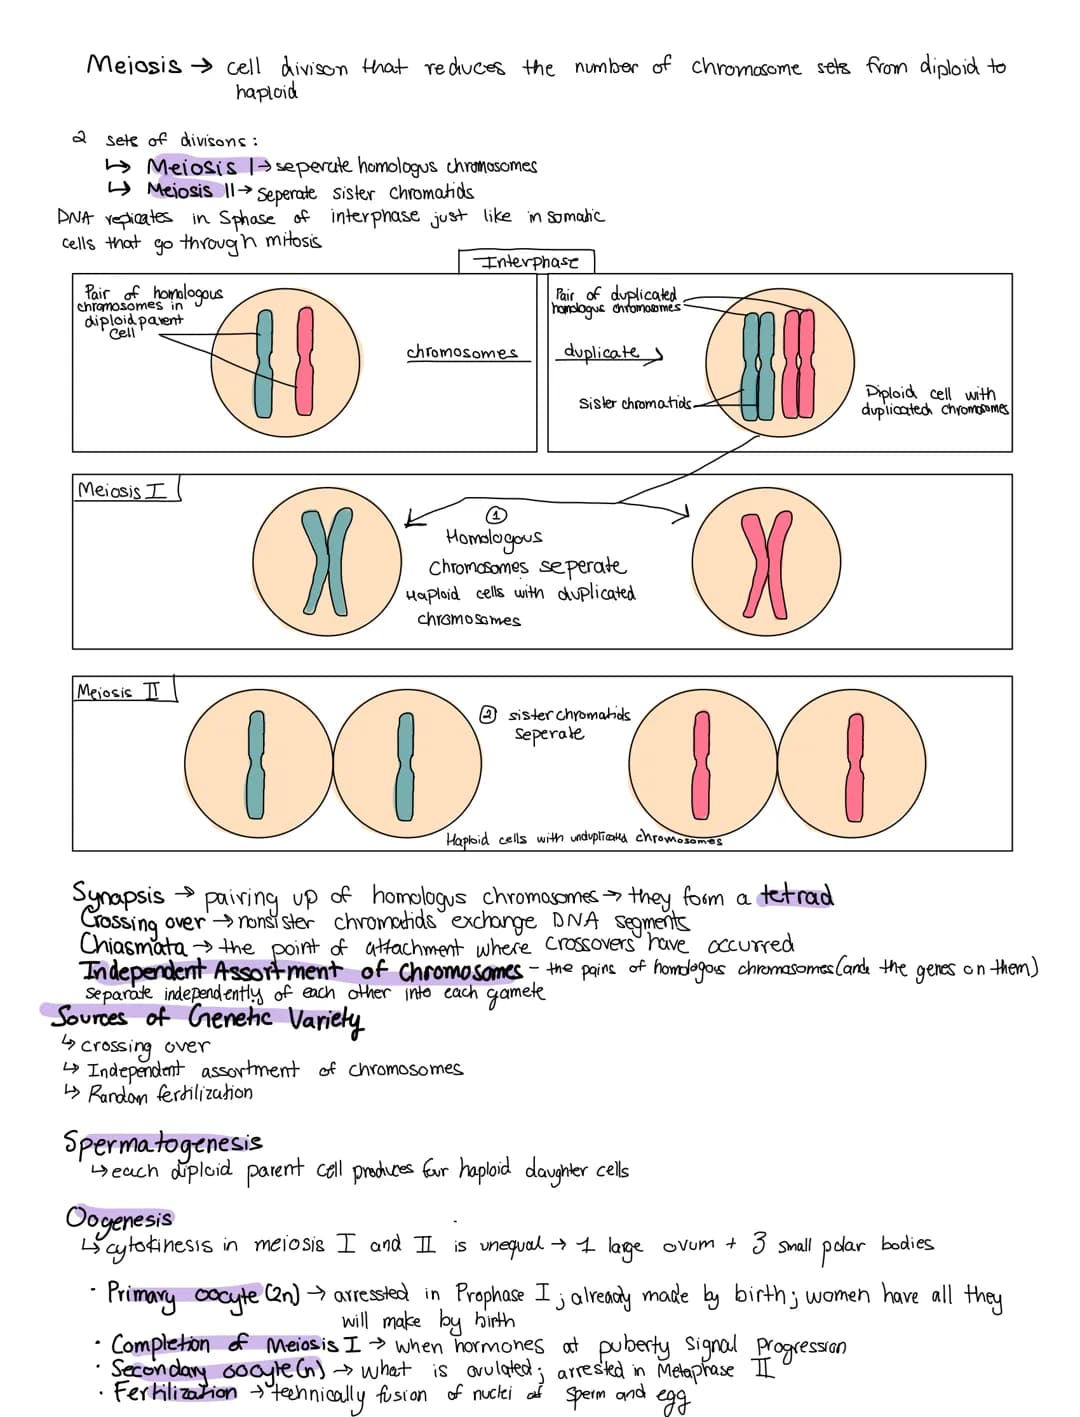 Meiosis → cell divison that reduces the number of chromosome sets from diploid to
haploid
2 sets of divisons:
↳ Meiosis I → seperate homologus chromosomes
↳ Meiosis II → seperate sister chromatids
DNA replicates in Sphase of interphase just like in somatic
cells that go through mitosis
Interphase
Pair of homologous
chromosomes in
diploid parent
cell
chromosomes
Pair of duplicated
homologus chromosomes
duplicate
sister chromatids
Diploid cell with
duplicated chromosomes
Meiosis I
①
Homologous
chromosomes seperate
Haploid cells with duplicated
chromosomes
Meiosis II
② sister chromatids
seperate
Haploid cells with unduplicated chromosomes
Synapsis → pairing up of homologus chromosomes → they form a tetrad
Crossing over → nonsister chromatids exchange DNA segments
Chiasmata → the point of attachment where crossovers have occurred
Independent Assortment of Chromosomes - the pairs of homologous chromosomes (and the genes on them)
separate independently of each other into each gamete
Sources of Genetic Variety
↳ crossing over
↳ Independent assortment of chromosomes
↳ Random fertilization
Spermatogenesis
↳ each diploid parent cell produces four haploid daughter cells
Oogenesis
↳ cytokinesis in meiosis I and II is unequal → 1 large ovum + 3 small polar bodies
· Primary oocyte (2n) → arressted in Prophase I; already made by birth; women have all they
will make by birth
· Completion of Meiosis I → when hormones at puberty signal progression
· Secondary oocyte (n) → what is ovulated; arrested in Metaphase II
· Fertilization → technically fusion of nuclei of sperm and egg